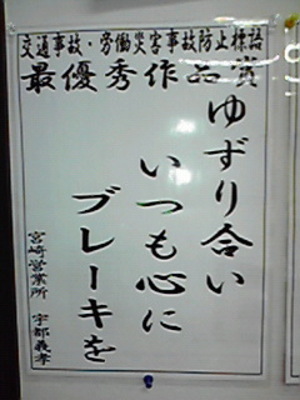 交通事故・労働災害事故防止標語
最優秀作品賞
ゆずり合い
いつも心に
ブレーキを
宮崎営業所 宇都義孝